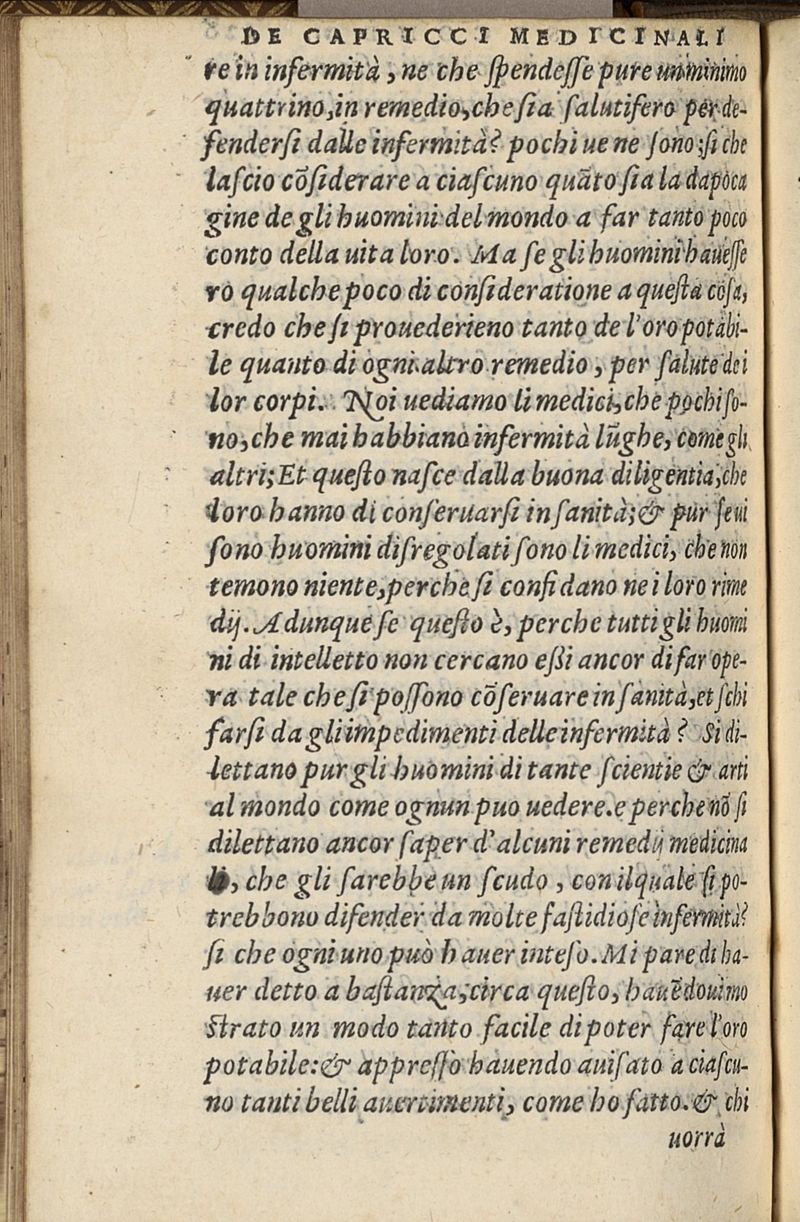 DE CAPRICCI MEDICINALI
re in infermità, ne che ſpendeſſe pure un minimo
quattrino, in remedio, che ſia ſalutifero per de-
fenderſi dalle infermità? pochi ue ne ſono; ſi che
laſcio cõſiderare a ciaſcuno quãto ſia la dapoca
gine de gli huomini del mondo a far tanto poco
conto della uita loro. Ma ſe gli huomini haueſſe
ro qualche poco di conſideratione a queſta coſa,
credo che ſi prouederieno tanto de l'oro potabi-
le quanto di ogni altro remedio, per ſalute dei
lor corpi. Noi uediamo li medici, che pochi ſo-
no, che mai habbiano infermità lũghe, come gli
altri; Et queſto naſce dalla buona diligentia, che
loro hanno di conſeruarſi in ſanità; & pur ſe ui
ſono huomini diſregolati ſono li medici, che non
temono niente, perche ſi confidano ne i loro rime
dij. Adunque ſe queſto è, perche tutti gli huomi
ni di intelletto non cercano eſſi ancor di far ope-
ra tale che ſi poſſono cõſeruare in ſanità, et ſchi
farſi da gli impedimenti delle infermità? Si di-
lettano pur gli huomini di tante ſcientie & arti
al mondo come ognun puo uedere. e perche nõ ſi
dilettano ancor ſaper d'alcuni remedij medicina
li, che gli ſarebbe un ſcudo, con il quale ſi po-
trebbono difender da molte faſtidioſe infermità?
ſi che ogni uno può hauer inteſo. Mi pare di ha-
uer detto a baſtanza, circa queſto, hauẽdoui mo
ſtrato un modo tanto facile di poter fare l'oro
potabile: & appreſſo hauendo auiſato a ciaſcu-
no tanti belli auertimenti, come ho fatto. & chi
uorrà